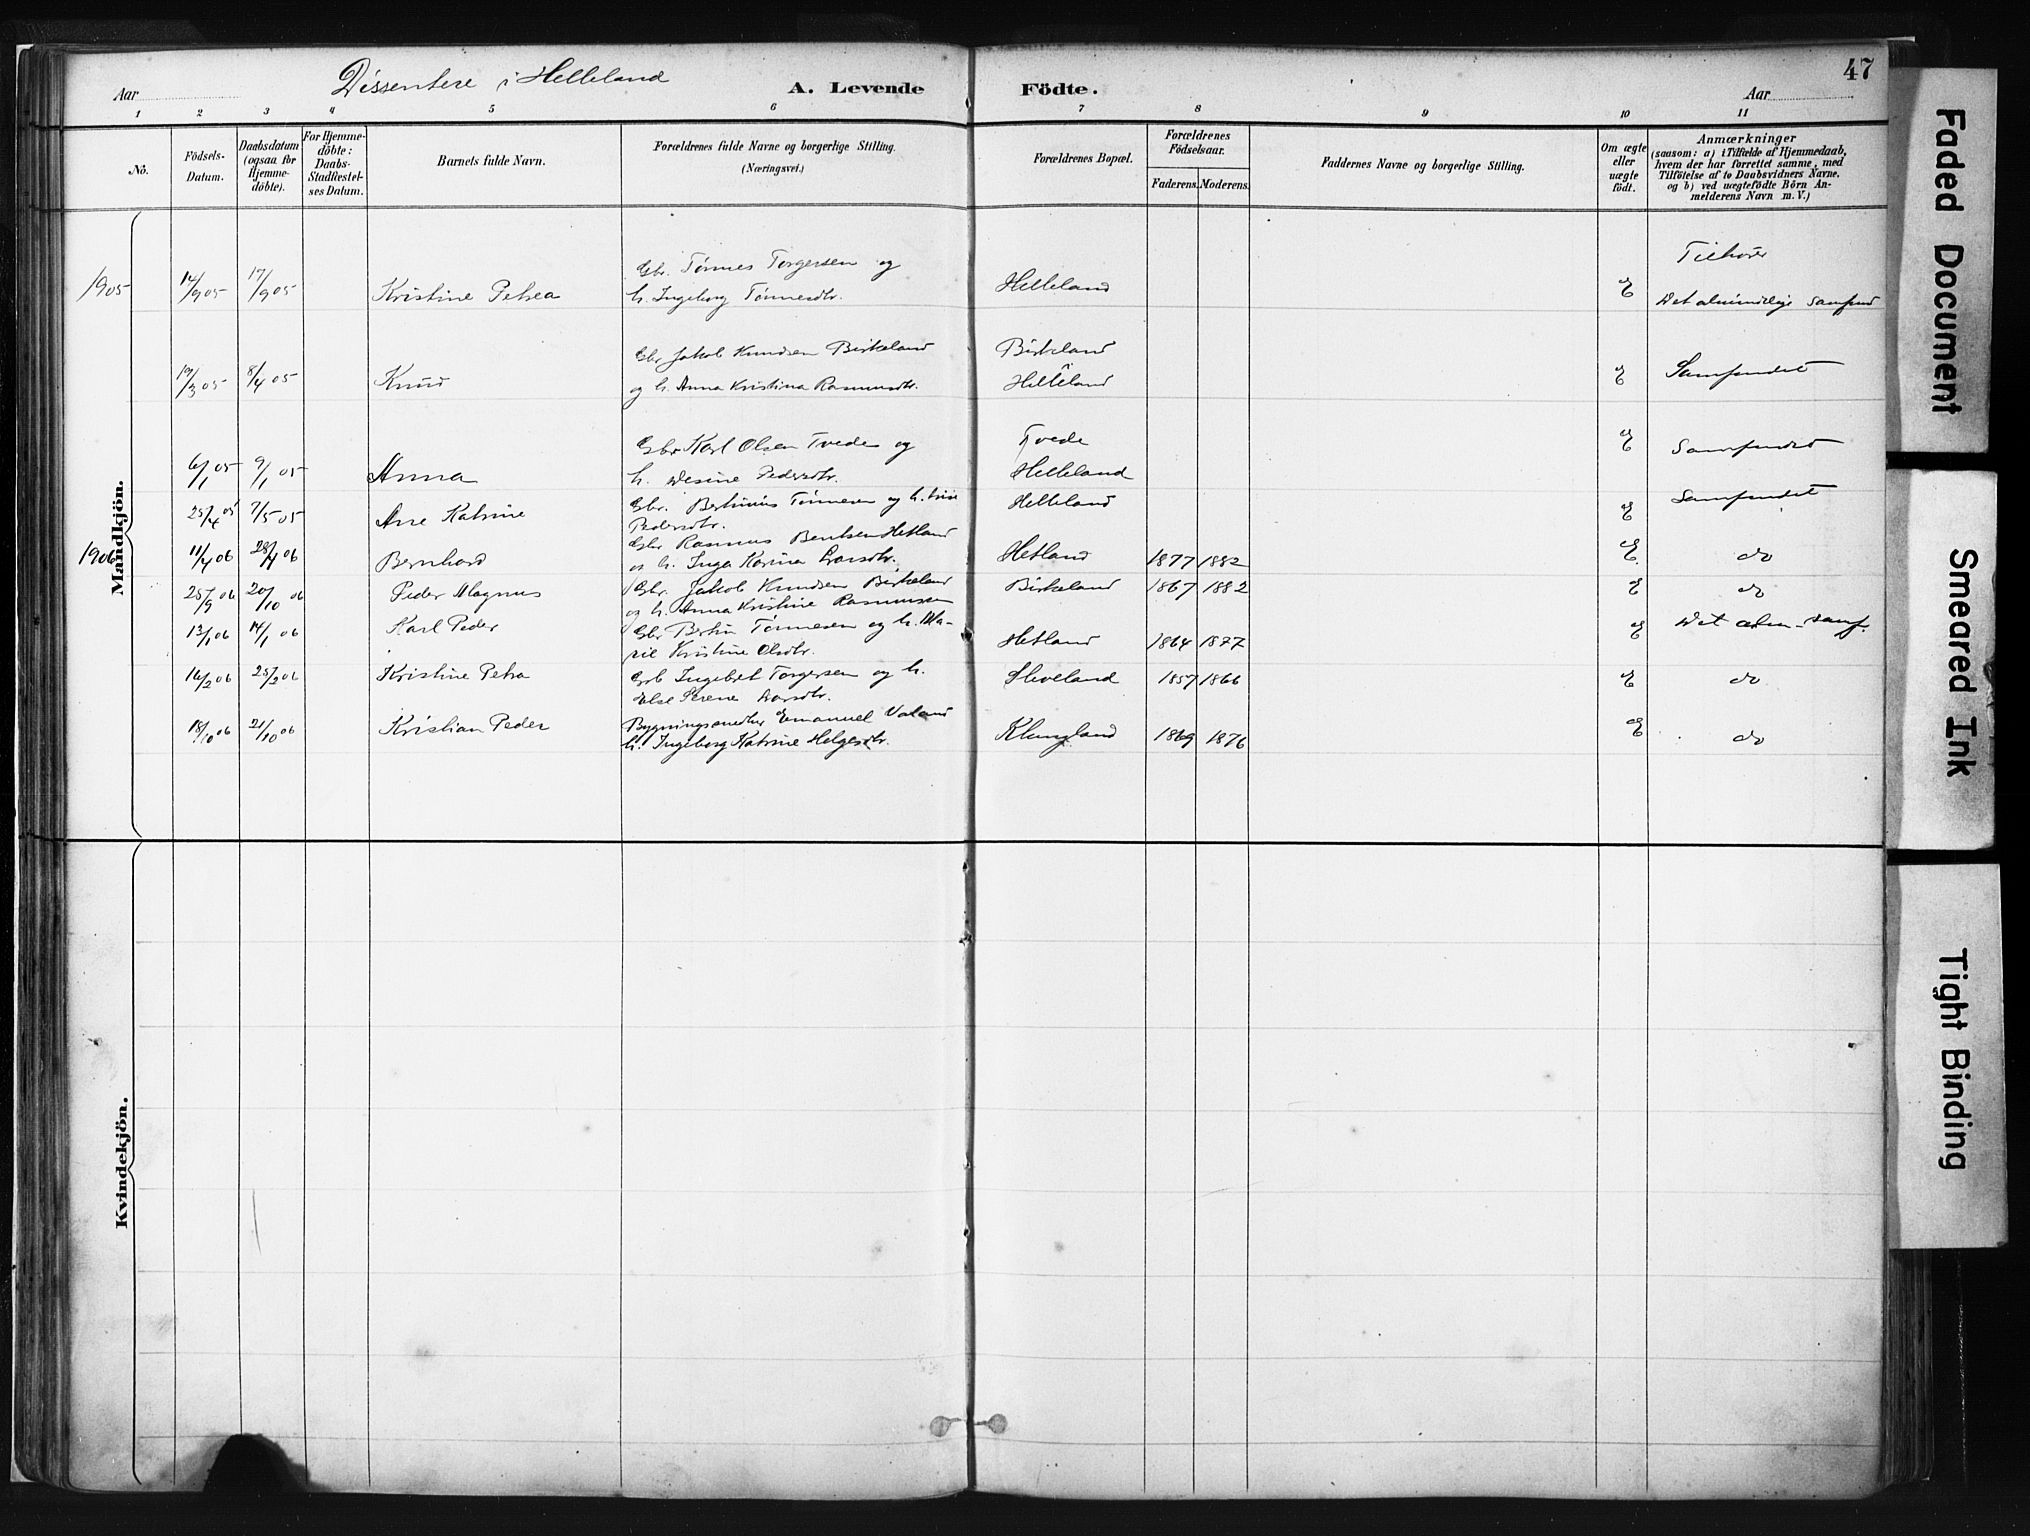 Dissentere i Helleland
47
Aar
A. Levende Födte.
Aar
1 2 3 4 5 6 7 8 9 10 11
No.
Födsels-Datum.
Daabsdatum (ogsaa for Hjemme-döbte).
For Hjemme-döbte: Daabs-Stadfæstel-ses Datum.
Barnets fulde Navn.
Forældrenes fulde Navne og borgerlige Stilling.
(Næringsvei.)
Forældrenes Bopæl.
Forældrenes Födselsaar.
Faderens. Moderens.
Faddernes Navne og borgerlige Stilling.
Om ægte eller uægte födt.
Anmærkninger
(saasom: a) i Tilfælde af Hjemmedaab,
hvem der har forrettet samme, med
Tilföielse af to Daabsvidners Navne,
og b) ved uægtefödte Börn An-
melderens Navn m. V.)
Mandkjön.
1905 14/9 05 17/9 05 Kristine Petrea Gbr. Tønnes Torgersen og
h. Ingeborg Tønnesdtr. Helleland E Tilhører
Det almindelige Samfund
19/3 05 8/4 05 Knud Gbr Jakob Knudsen Birkeland
og h. Anna Kristina Rasmusdtr. Birkeland
Helleland E Samfundet
6/1 05 9/1 05 Anna Gbr Karl Olsen Tvede og
h. Desine Pedersdtr. Tvede
Helleland E Samfundet
25/4 05 7/5 05 Ane Katrine Gbr. Bertinius Tønnesen og h.
Pedersdtr. Helleland E Samfundet
1906 11/4 06 28/4 06 Bernhard Gbr Rasmus Bentsen Hetland
og h. Inga Karina Larsdtr. Hetland 1877 1882 E do
25/9 06 20/10 06 Peder Magnus Gbr. Jakob Knudsen Birkeland
og h. Anna Kristine Rasmussen Birkeland 1867 1882 E do
13/1 06 14/1 06 Karl Peder Gbr Bertin Tønnesen og h. Ma-
rie Kristine Olsdtr. Hetland 1864 1877 E Det alm. Samf.
16/2 06 25/2 06 Kristine Petra Grb Ingebret Torgersen og h.
Else Serene Larsdtr. Sleveland 1857 1866 E do
18/10 06 21/10 06 Kristian Peder Bygningssnedker Emanuel Valand
h. Ingeborg Katrine Helgesdtr. Klungland 1869 1876 E do
Kvindekjön.
Faded Document
Smeared Ink
Tight Binding